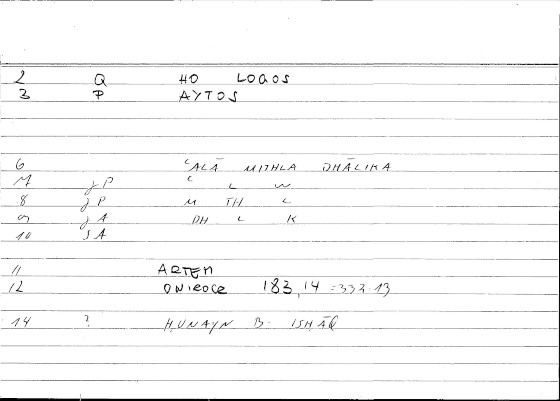 2 Q HO LOGOS
3 P AYTOS
6 ʿALĀ MITHLA DHĀLIKA
8 JP M TH L
9 JA DH L K
10 SA
11 ARTEM
12 ONIROCR 183,14 =332.13
14 ? ḤUNAYN B. ISḤĀQ